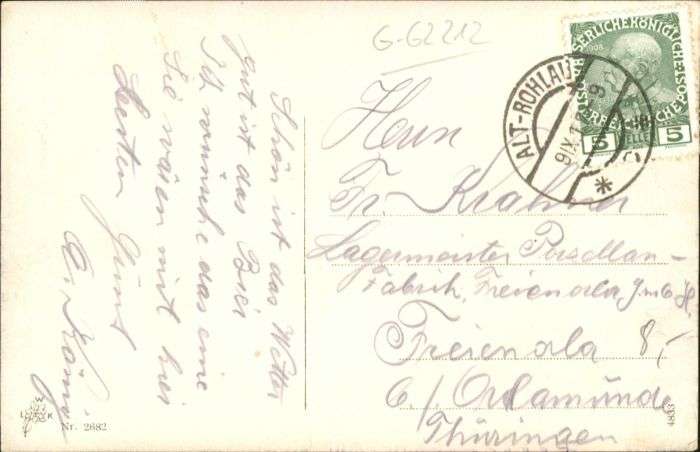 G-G2212
Schön ist das Wetter
gut ist das Bier
Ich wünsche das eine
Sie wären mit hier
Besten Gruss
KAISERLICHE KÖNIGLICHE
ÖSTERREICHISCHE POST
1908
5 HELLER 5
ALT-ROHLAU
9/IX
*
Herrn
Fr. Krahmer
Lagermeister Porzellan-
Fabrik, Freienorla G.m.b.H
Freienorla 8,-
b/. Orlamünde
Thüringen
Nr. 2682
4833